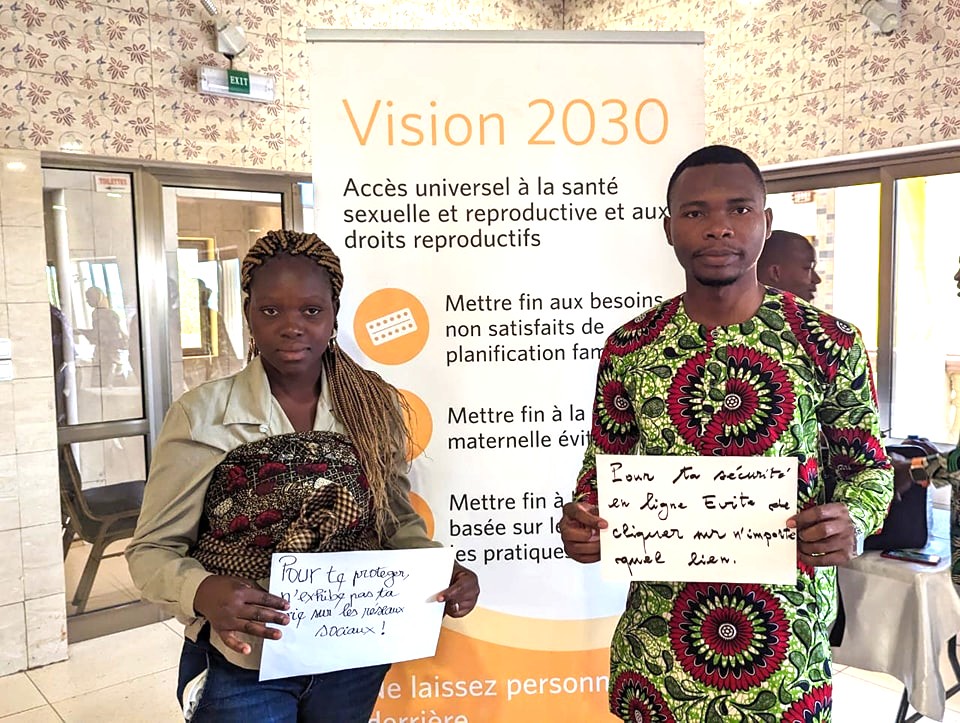 EXIT
TOILETTES
Vision 2030
Accès universel à la santé
sexuelle et reproductive et aux
droits reproductifs
Mettre fin aux besoins
non satisfaits de
planification fam
Mettre fin à la
maternelle évit
Mettre fin à
basée sur le
les pratiques
Ne laissez personn
derrière
Pour te protéger,
n'exhibe pas ta
vie sur les réseaux
sociaux !
Pour ta sécurité
en ligne Evite de
cliquer sur n'importe
quel lien.